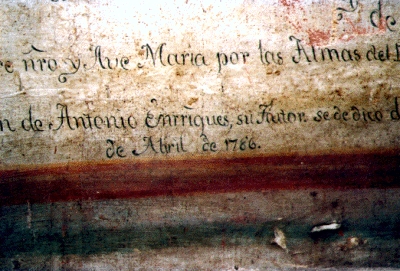 de
re nro y Ave Maria por las Almas del
n de Antonio Enrriques, su Autor. se de dico d
de Abril de 1786.